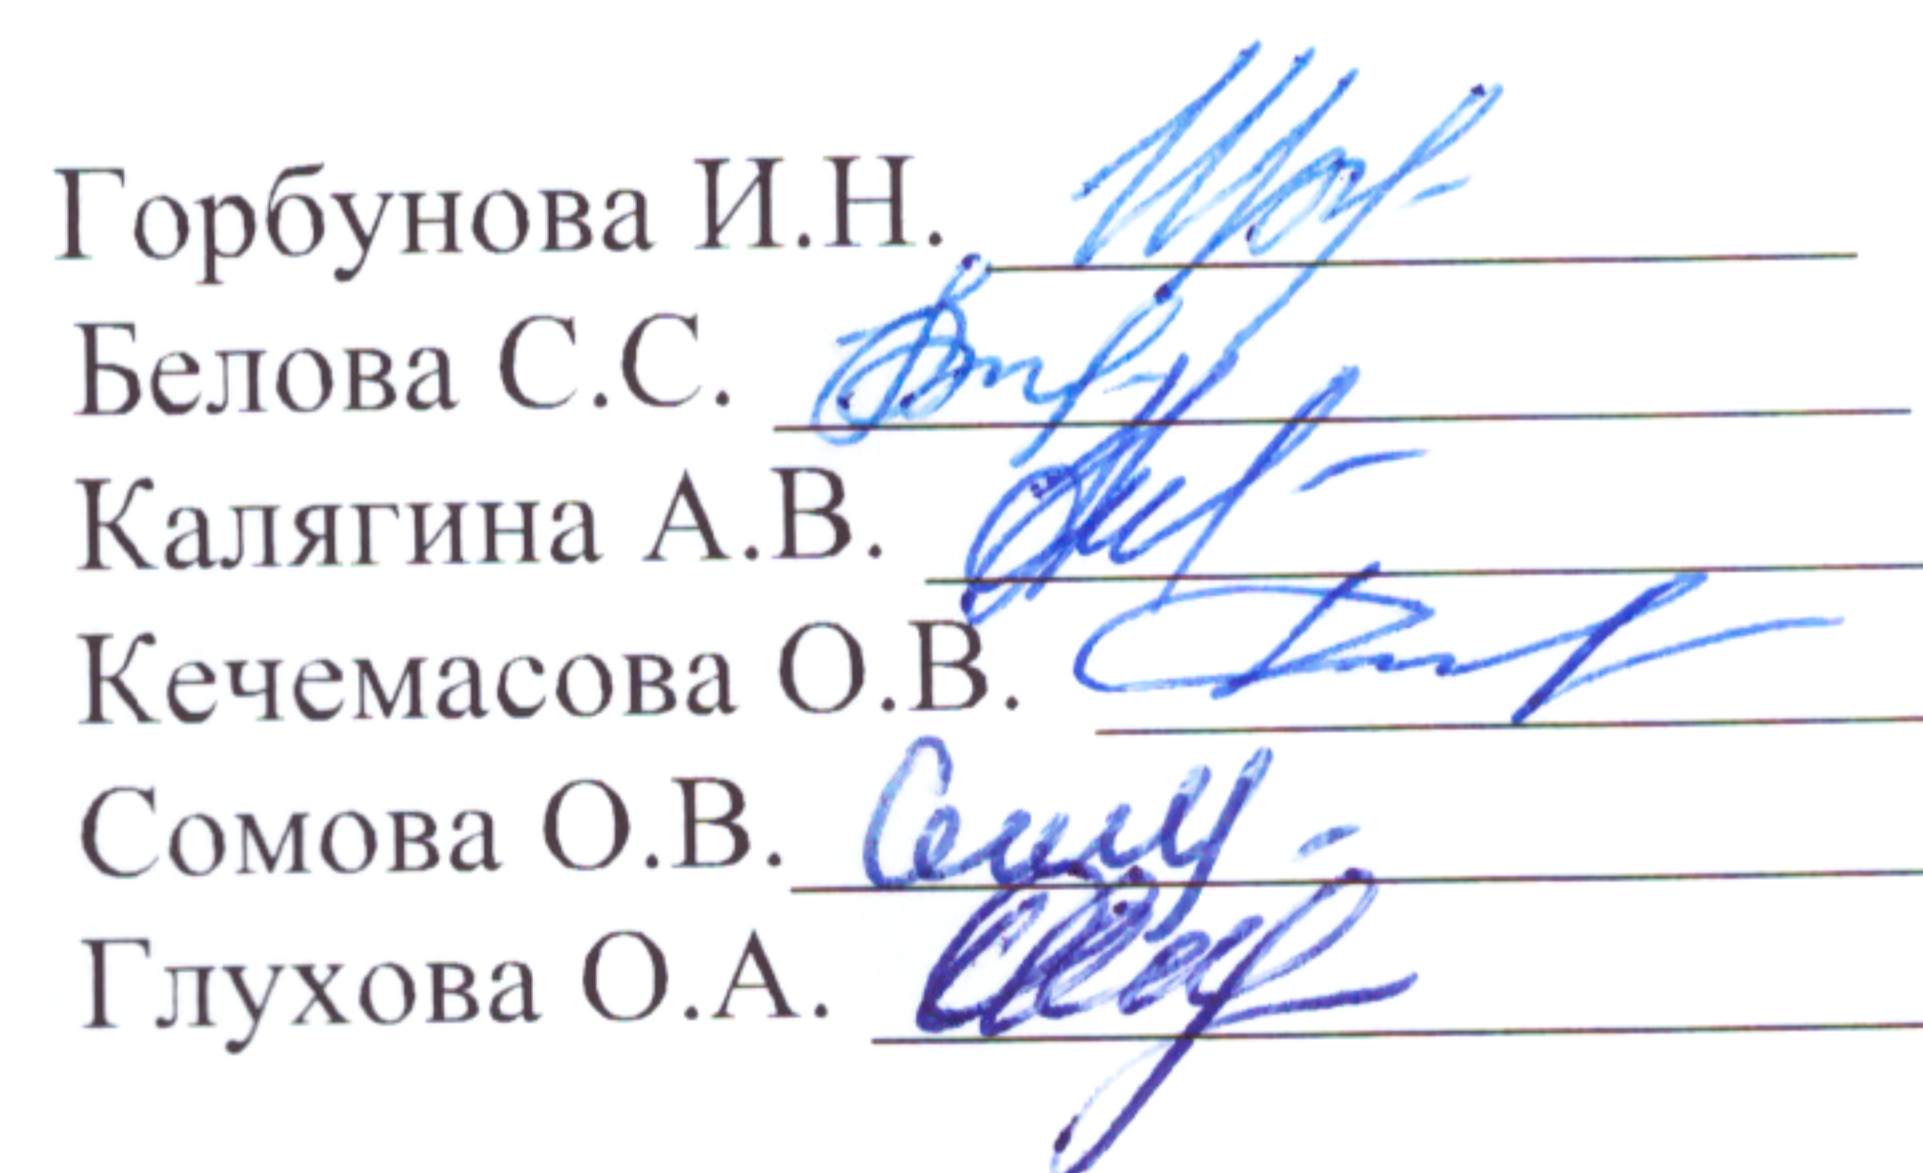 Горбунова И.Н.
Белова С.С.
Калягина А.В.
Кечемасова О.В.
Сомова О.В.
Глухова О.А.